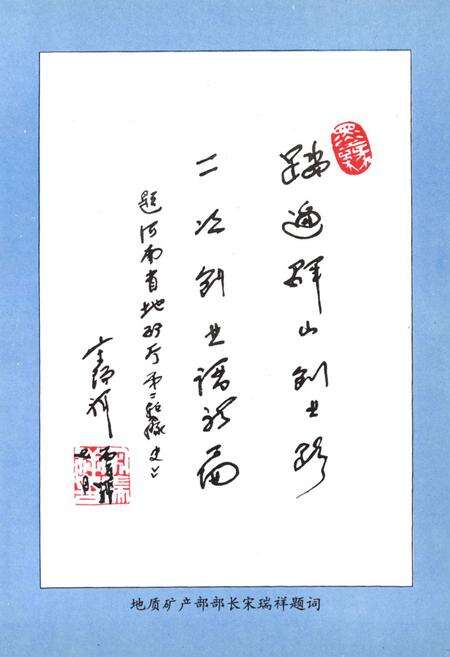 踏遍群山创业路
二次创业谱新篇
题河南省地矿厅第二
宋瑞祥
地质矿产部部长宋瑞祥题词